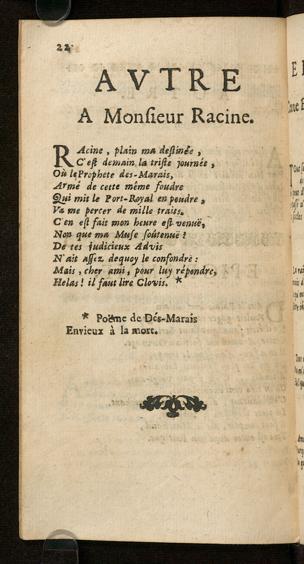 22
AVTRE
A Monſieur Racine.
RAcine, plain ma deſtinée,
C'eſt demain la triſte journée,
Où le Prophete des-Marais,
Armé de cette même foudre
Qui mit le Port-Royal en poudre,
Va me percer de mille traits.
C'en eſt fait mon heure eſt venuë,
Non que ma Muſe ſoûtenuë
De tes judicieux Advis
N'ait aſſez dequoy le confondre:
Mais, cher ami, pour luy répondre,
Helas! il faut lire Clovis. *
* Poëme de Dés-Marais
Envieux à la mort.